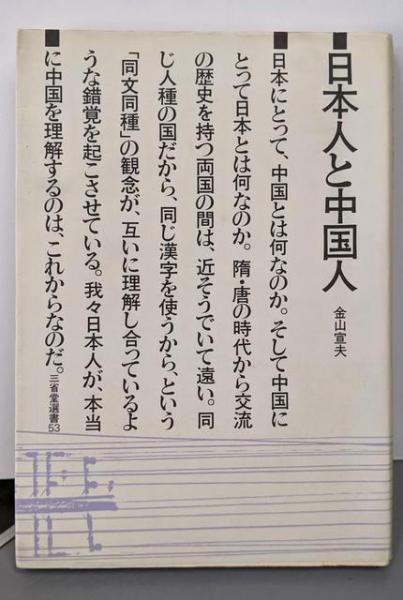 ■日本人と中国人
金山宣夫
■日本にとって、中国とは何なのか。そして中国に
とって日本とは何なのか。隋・唐の時代から交流
の歴史を持つ両国の間は、近そうでいて遠い。同
じ人種の国だから、同じ漢字を使うから、という
「同文同種」の観念が、互いに理解し合っているよ
うな錯覚を起こさせている。我々日本人が、本当
■に中国を理解するのは、これからなのだ。
三省堂選書53